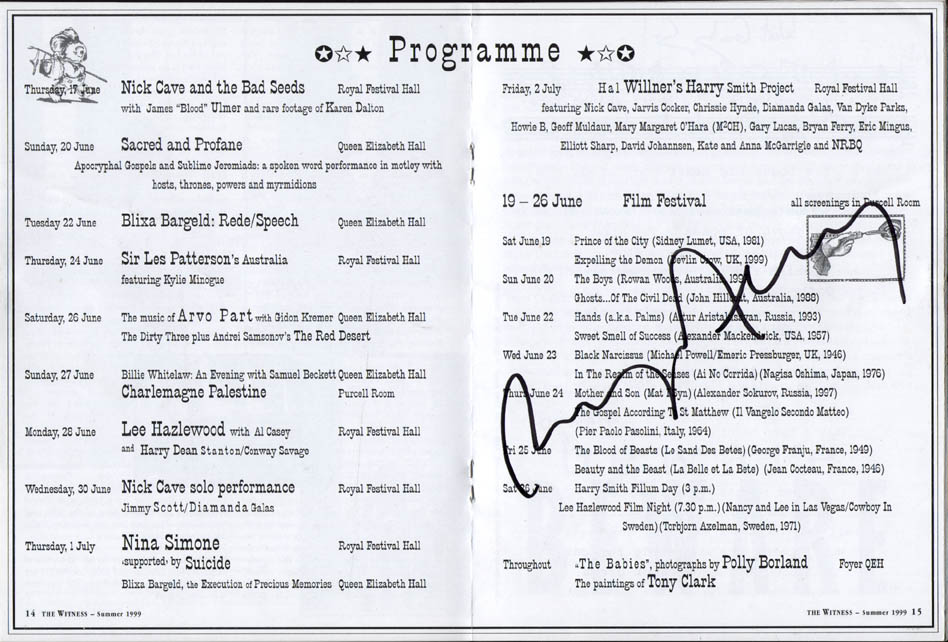 Programme
Thursday, 17 June Nick Cave and the Bad Seeds Royal Festival Hall
with James "Blood" Ulmer and rare footage of Karen Dalton
Sunday, 20 June Sacred and Profane Queen Elizabeth Hall
Apocryphal Gospels and Sublime Jeremiads: a spoken word performance in motley with
hosts, thrones, powers and myrmidions
Tuesday 22 June Blixa Bargeld: Rede/Speech Queen Elizabeth Hall
Thursday, 24 June Sir Les Patterson's Australia Royal Festival Hall
featuring Kylie Minogue
Saturday, 26 June The music of Arvo Part with Gidon Kremer Queen Elizabeth Hall
The Dirty Three plus Andrei Samsonov's The Red Desert
Sunday, 27 June Billie Whitelaw: An Evening with Samuel Beckett Queen Elizabeth Hall
Charlemagne Palestine Purcell Room
Monday, 28 June Lee Hazlewood with Al Casey Royal Festival Hall
and Harry Dean Stanton/Conway Savage
Wednesday, 30 June Nick Cave solo performance Royal Festival Hall
Jimmy Scott/Diamanda Galas
Thursday, 1 July Nina Simone Royal Festival Hall
‹supported› by Suicide
Blixa Bargeld, the Execution of Precious Memories Queen Elizabeth Hall
14 THE WITNESS – Summer 1999
Friday, 2 July Hal Willner's Harry Smith Project Royal Festival Hall
featuring Nick Cave, Jarvis Cocker, Chrissie Hynde, Diamanda Galas, Van Dyke Parks,
Howie B, Geoff Muldaur, Mary Margaret O'Hara (M²OH), Gary Lucas, Bryan Ferry, Eric Mingus,
Elliott Sharp, David Johannsen, Kate and Anna McGarrigle and NRBQ
19 – 26 June Film Festival all screenings in Purcell Room
Sat June 19 Prince of the City (Sidney Lumet, USA, 1981)
Expelling the Demon (Devlin Crow, UK, 1999)
Sun June 20 The Boys (Rowan Woods, Australia, 199
Ghosts...Of The Civil Dead (John Hillcoat, Australia, 1988)
Tue June 22 Hands (a.k.a. Palms) (Artur Aristakisyan, Russia, 1993)
Sweet Smell of Success (Alexander Mackendrick, USA, 1957)
Wed June 23 Black Narcissus (Michael Powell/Emeric Pressburger, UK, 1946)
In The Realm of the Senses (Ai No Corrida) (Nagisa Oshima, Japan, 1976)
Thurs June 24 Mother and Son (Mat I Syn) (Alexander Sokurov, Russia, 1997)
The Gospel According To St Matthew (Il Vangelo Secondo Matteo)
(Pier Paolo Pasolini, Italy, 1964)
Fri 25 June The Blood of Beasts (Le Sand Des Betes) (George Franju, France, 1949)
Beauty and the Beast (La Belle et La Bete) (Jean Cocteau, France, 1946)
Sat 26 June Harry Smith Fillum Day (3 p.m.)
Lee Hazlewood Film Night (7.30 p.m.) (Nancy and Lee in Las Vegas/Cowboy In
Sweden) (Torbjorn Axelman, Sweden, 1971)
Throughout «The Babies», photographs by Polly Borland Foyer QEH
The paintings of Tony Clark
THE WITNESS – Summer 1999 15